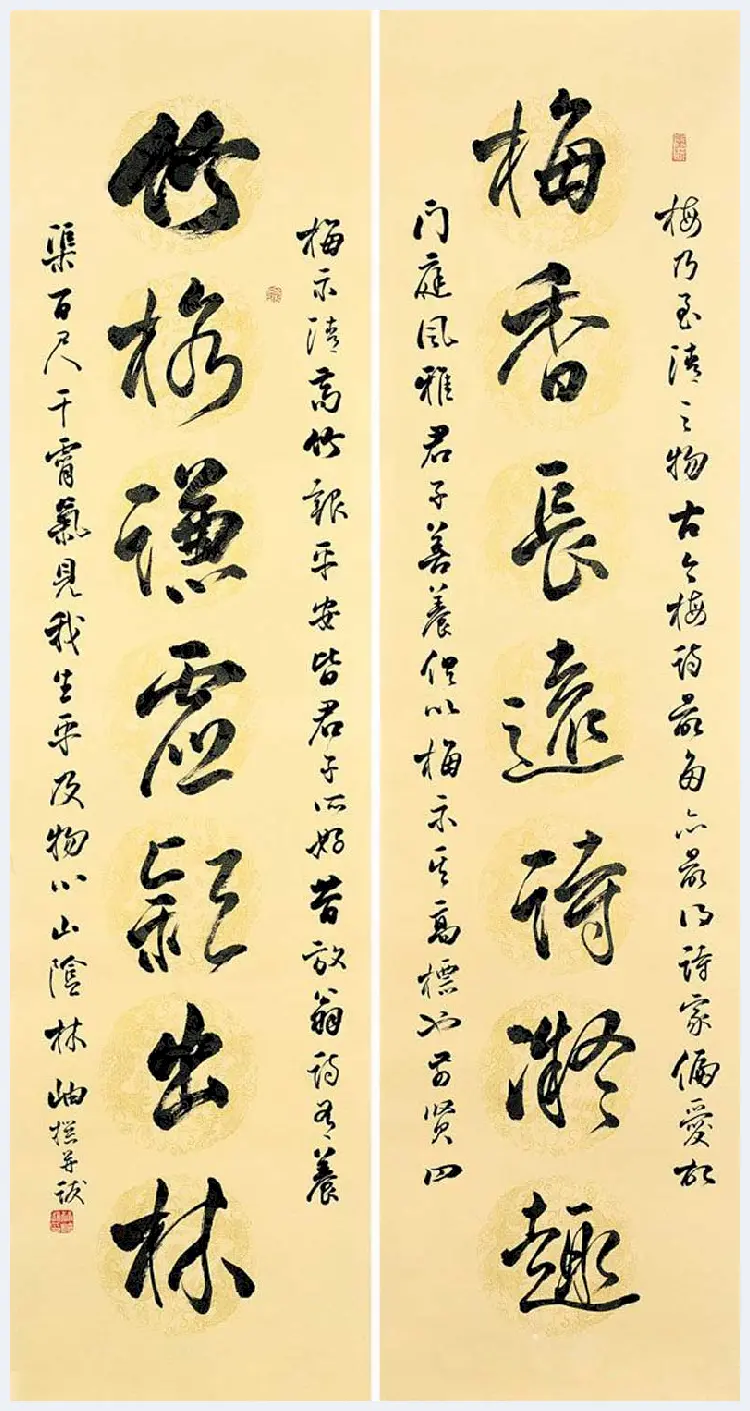 梅乃至清之物古今梅詩最多亦最得詩家偏愛故
梅香長遠詩凝趣
门庭風雅君子善養俱以梅示其高標如前贤曰
梅示清高竹報平安皆君子所好昔放翁詩有養
竹格謙虛頴出林
渠百尺干霄氣見我生平及物心山陰林岫撰并跋